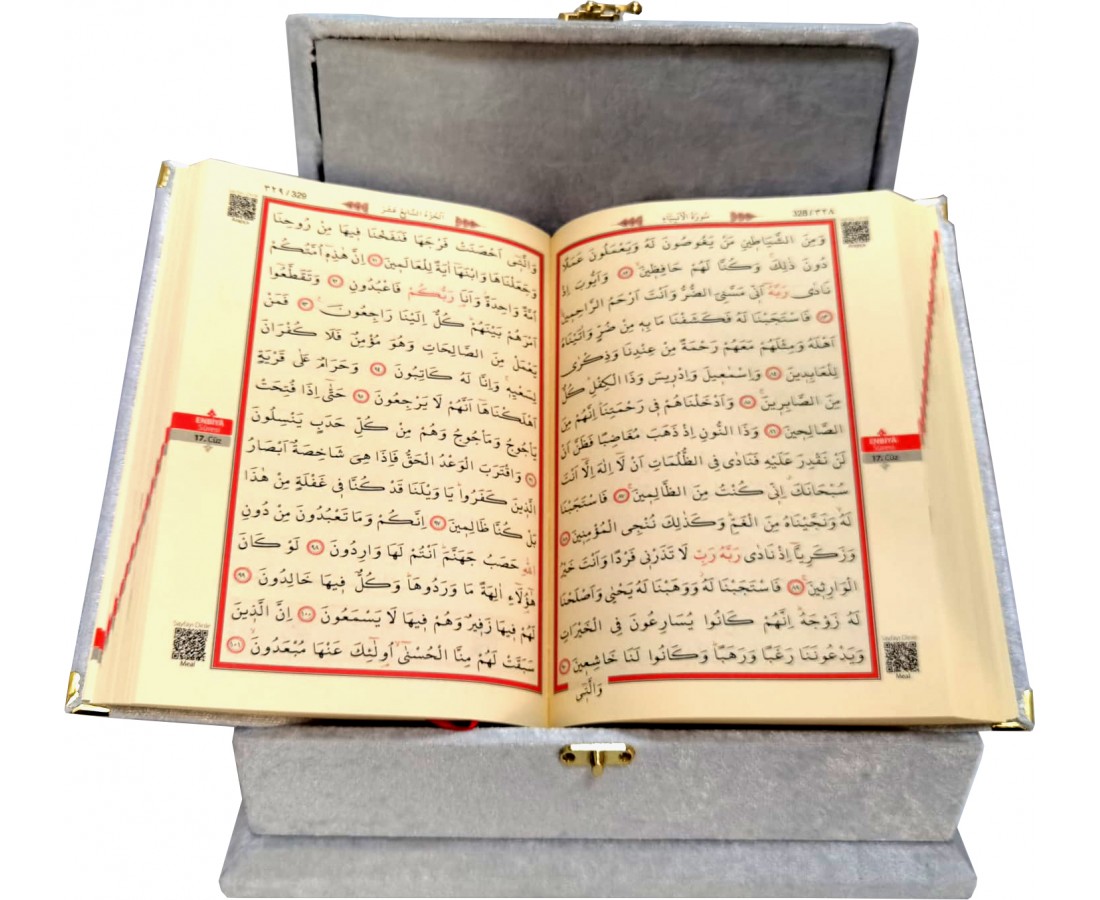 328 / ٣٢٨
سُورَةُ الْاَنْبِيَاءِ
وَمِنَ الشَّيَاطٖينِ مَنْ يَغُوصُونَ لَهُ وَيَعْمَلُونَ عَمَلًا
دُونَ ذٰلِكَۚ وَكُنَّا لَهُمْ حَافِظٖينَۙ ﴿٨٢﴾ وَاَيُّوبَ اِذْ
نَادٰى رَبَّهُٓ اَنّٖي مَسَّنِيَ الضُّرُّ وَاَنْتَ اَرْحَمُ الرَّاحِمٖينَۚ
﴿٨٣﴾ فَاسْتَجَبْنَا لَهُ فَكَشَفْنَا مَا بِهٖ مِنْ ضُرٍّ وَاٰتَيْنَاهُ
اَهْلَهُ وَمِثْلَهُمْ مَعَهُمْ رَحْمَةً مِنْ عِنْدِنَا وَذِكْرٰى
لِلْعَابِدٖينَ ﴿٨٤﴾ وَاِسْمٰعٖيلَ وَاِدْرٖيسَ وَذَا الْكِفْلِۜ كُلٌّ
مِنَ الصَّابِرٖينَۚ ﴿٨٥﴾ وَاَدْخَلْنَاهُمْ فٖي رَحْمَتِنَاۜ اِنَّهُمْ مِنَ
الصَّالِحٖينَ ﴿٨٦﴾ وَذَا النُّونِ اِذْ ذَهَبَ مُغَاضِبًا فَظَنَّ اَنْ
لَنْ نَقْدِرَ عَلَيْهِ فَنَادٰى فِي الظُّلُمَاتِ اَنْ لَٓا اِلٰهَ اِلَّٓا اَنْتَ
سُبْحَانَكَۗ اِنّٖي كُنْتُ مِنَ الظَّالِمٖينَۚ ﴿٨٧﴾ فَاسْتَجَبْنَا
لَهُۙ وَنَجَّيْنَاهُ مِنَ الْغَمِّۜ وَكَذٰلِكَ نُنْجِي الْمُؤْمِنٖينَ ﴿٨٨﴾
وَزَكَرِيَّٓا اِذْ نَادٰى رَبَّهُ رَبِّ لَا تَذَرْنٖي فَرْدًا وَاَنْتَ خَيْرُ
الْوَارِثٖينَۚ ﴿٨٩﴾ فَاسْتَجَبْنَا لَهُۘ وَوَهَبْنَا لَهُ يَحْيٰى وَاَصْلَحْنَا
لَهُ زَوْجَهُۜ اِنَّهُمْ كَانُوا يُسَارِعُونَ فِي الْخَيْرَاتِ
وَيَدْعُونَنَا رَغَبًا وَرَهَبًاۜ وَكَانُوا لَنَا خَاشِعٖينَ ﴿٩٠﴾
وَالَّتٖٓي
ENBİYÂ
Sûresi
17. Cüz
Sayfayı Dinle
Meal
٣٢٩ / 329
اَلْجُزْءُ السَّابِعُ عَشَرَ
وَالَّتٖٓي اَحْصَنَتْ فَرْجَهَا فَنَفَخْنَا فٖيهَا مِنْ رُوحِنَا
وَجَعَلْنَاهَا وَابْنَهَٓا اٰيَةً لِلْعَالَمٖينَ ﴿٩١﴾ اِنَّ هٰذِهٖٓ اُمَّتُكُمْ
اُمَّةً وَاحِدَةً وَاَنَا۬ رَبُّكُمْ فَاعْبُدُونِ ﴿٩٢﴾ وَتَقَطَّعُٓوا
اَمْرَهُمْ بَيْنَهُمْۜ كُلٌّ اِلَيْنَا رَاجِعُونَ۟ ﴿٩٣﴾ فَمَنْ
يَعْمَلْ مِنَ الصَّالِحَاتِ وَهُوَ مُؤْمِنٌ فَلَا كُفْرَانَ
لِسَعْيِهٖۚ وَاِنَّا لَهُ كَاتِبُونَ ﴿٩٤﴾ وَحَرَامٌ عَلٰى قَرْيَةٍ
اَهْلَكْنَاهَٓا اَنَّهُمْ لَا يَرْجِعُونَ ﴿٩٥﴾ حَتّٰٓى اِذَا فُتِحَتْ
يَأْجُوجُ وَمَأْجُوجُ وَهُمْ مِنْ كُلِّ حَدَبٍ يَنْسِلُونَ
﴿٩٦﴾ وَاقْتَرَبَ الْوَعْدُ الْحَقُّ فَاِذَا هِيَ شَاخِصَةٌ اَبْصَارُ
الَّذٖينَ كَفَرُواۜ يَا وَيْلَنَا قَدْ كُنَّا فٖي غَفْلَةٍ مِنْ هٰذَا
بَلْ كُنَّا ظَالِمٖينَ ﴿٩٧﴾ اِنَّكُمْ وَمَا تَعْبُدُونَ مِنْ دُونِ
اللّٰهِ حَصَبُ جَهَنَّمَۜ اَنْتُمْ لَهَا وَارِدُونَ ﴿٩٨﴾ لَوْ كَانَ
هٰٓؤُ۬لَٓاءِ اٰلِهَةً مَا وَرَدُوهَاۜ وَكُلٌّ فٖيهَا خَالِدُونَ ﴿٩٩﴾
لَهُمْ فٖيهَا زَفٖيرٌ وَهُمْ فٖيهَا لَا يَسْمَعُونَ ﴿١٠٠﴾ اِنَّ الَّذٖينَ
سَبَقَتْ لَهُمْ مِنَّا الْحُسْنٰٓىۙ اُو۬لٰٓئِكَ عَنْهَا مُبْعَدُونَۙ ﴿١٠١﴾
ENBİYÂ
Sûresi
17. Cüz
Sayfayı Dinle
Meal